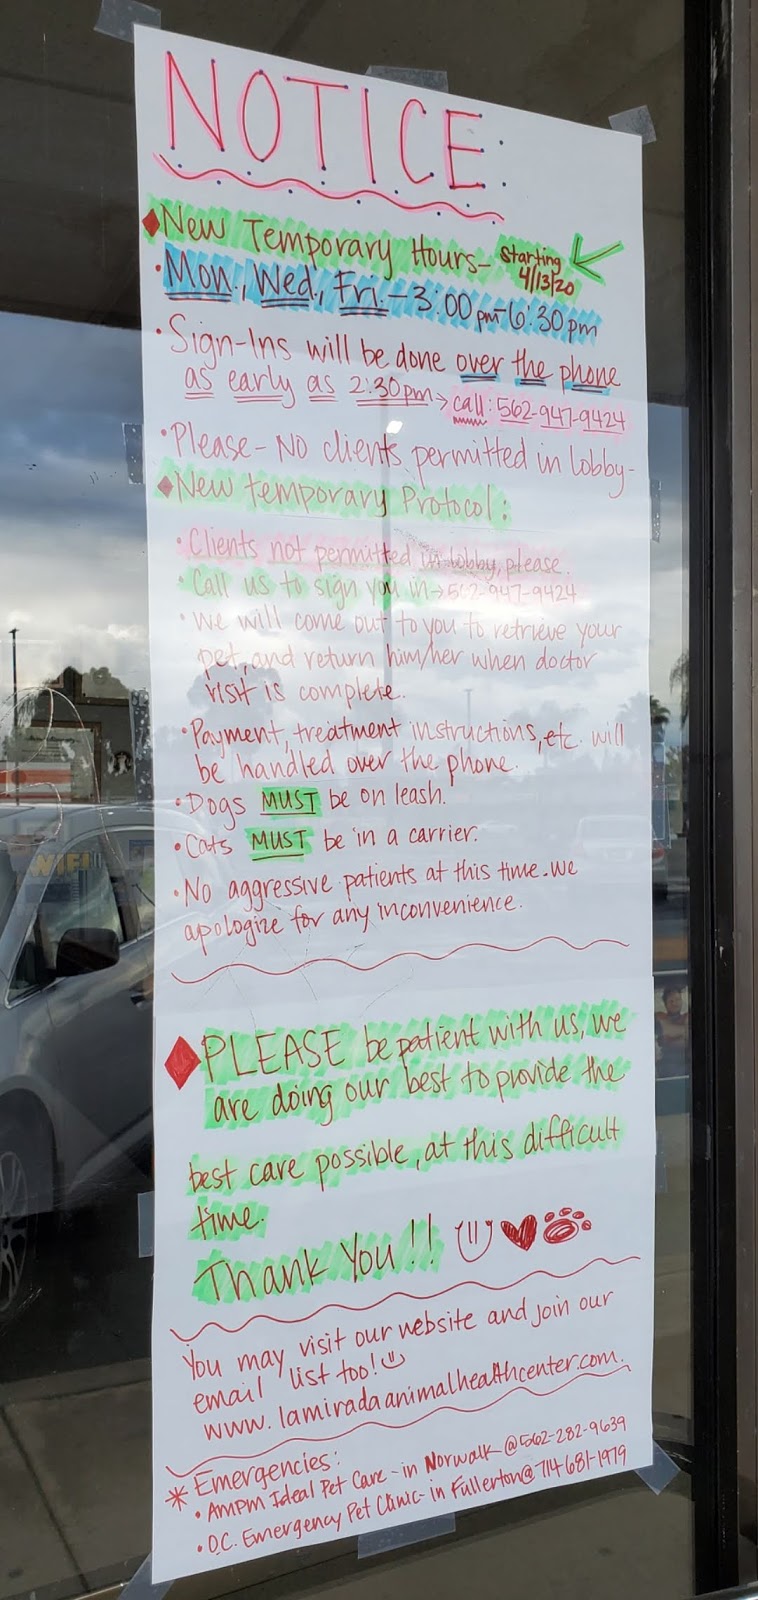 NOTICE:
New Temporary Hours- Starting
4/13/20
Mon., Wed., Fri. - 3:00pm-6:30pm
Sign-Ins will be done over the phone
as early as 2:30pm → call: 562-947-9424
Please - No clients permitted in lobby-
New temporary Protocol:
Clients not permitted in lobby, please.
Call us to sign you in → 562-947-9424
We will come out to you to retrieve your
pet, and return him/her when doctor
visit is complete.
Payment, treatment instructions, etc. will
be handled over the phone.
Dogs MUST be on leash.
Cats MUST be in a carrier.
No aggressive patients at this time. We
apologize for any inconvenience.
PLEASE be patient with us, we
are doing our best to provide the
best care possible, at this difficult
time.
Thank You!!
You may visit our website and join our
email list too!
www.lamiradaanimalhealthcenter.com.
* Emergencies:
AMPM Ideal Pet Care - in Norwalk @562-282-9639
O.C. Emergency Pet Clinic - in Fullerton@ 714-681-1979
WIFI